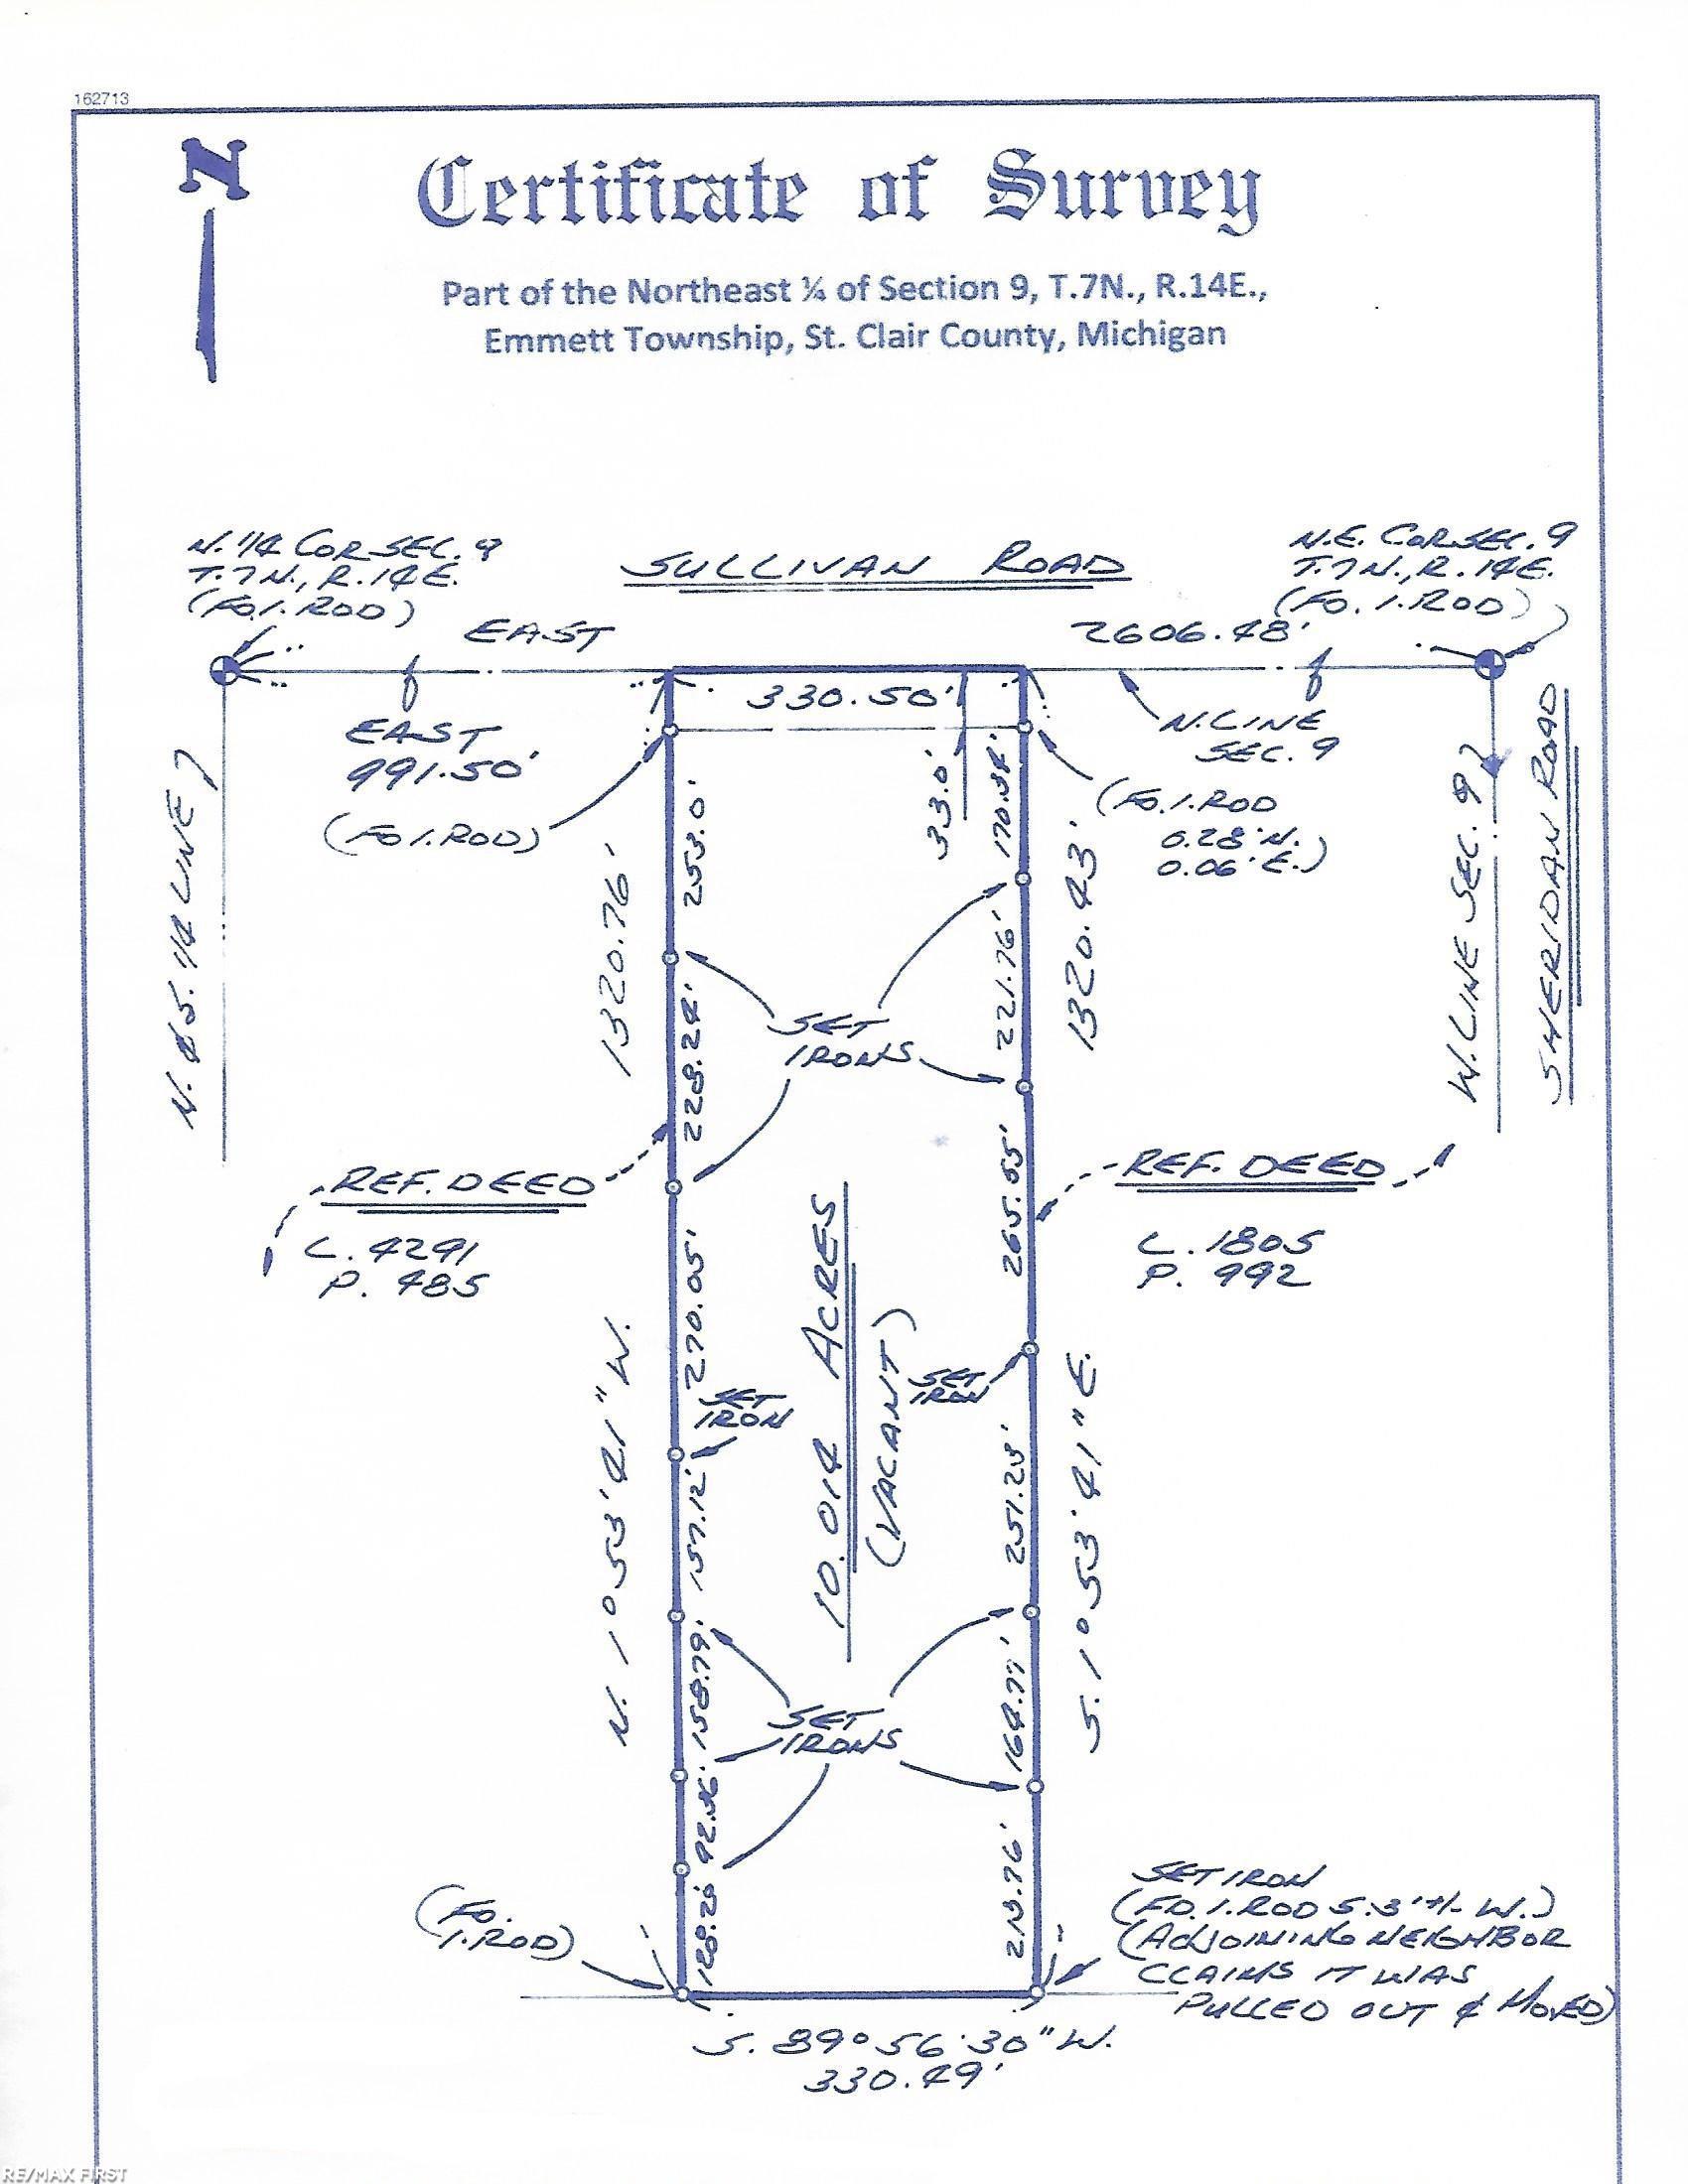 162713
N
Certificate of Survey
Part of the Northeast ¼ of Section 9, T.7N., R.14E.,
Emmett Township, St. Clair County, Michigan
N. 1/4 COR SEC. 9
T.7N., R.14E.
(FD I. ROD)
SULLIVAN ROAD
N.E. COR SEC. 9
T.7N., R.14E.
(FD. I. ROD)
EAST
2606.48'
330.50'
EAST
991.50'
(FD I. ROD)
N. LINE
SEC. 9
(FD. I. ROD
0.28' N.
0.06' E.)
33.0'
N. & S. 1/4 LINE
W. LINE SEC. 9
SHERIDAN ROAD
1320.76'
253.0'
170.34'
1320.43'
228.24'
221.76'
SET
IRONS
REF. DEED
L. 4291
P. 485
REF. DEED
L. 1805
P. 992
270.05'
265.55'
10.014 ACRES
(VACANT)
SET
IRON
SET
IRON
N. 1° 53' 41" W.
S. 1° 53' 41" E.
157.12'
251.23'
158.79'
164.77'
SET
IRONS
92.36'
(FD.
I. ROD)
SET IRON
(FD. I. ROD 5.3' +/- W.)
(ADJOINING NEIGHBOR
CLAIMS IT WAS
PULLED OUT & MOVED)
S. 89° 56' 30" W.
330.49'
RE/MAX FIRST